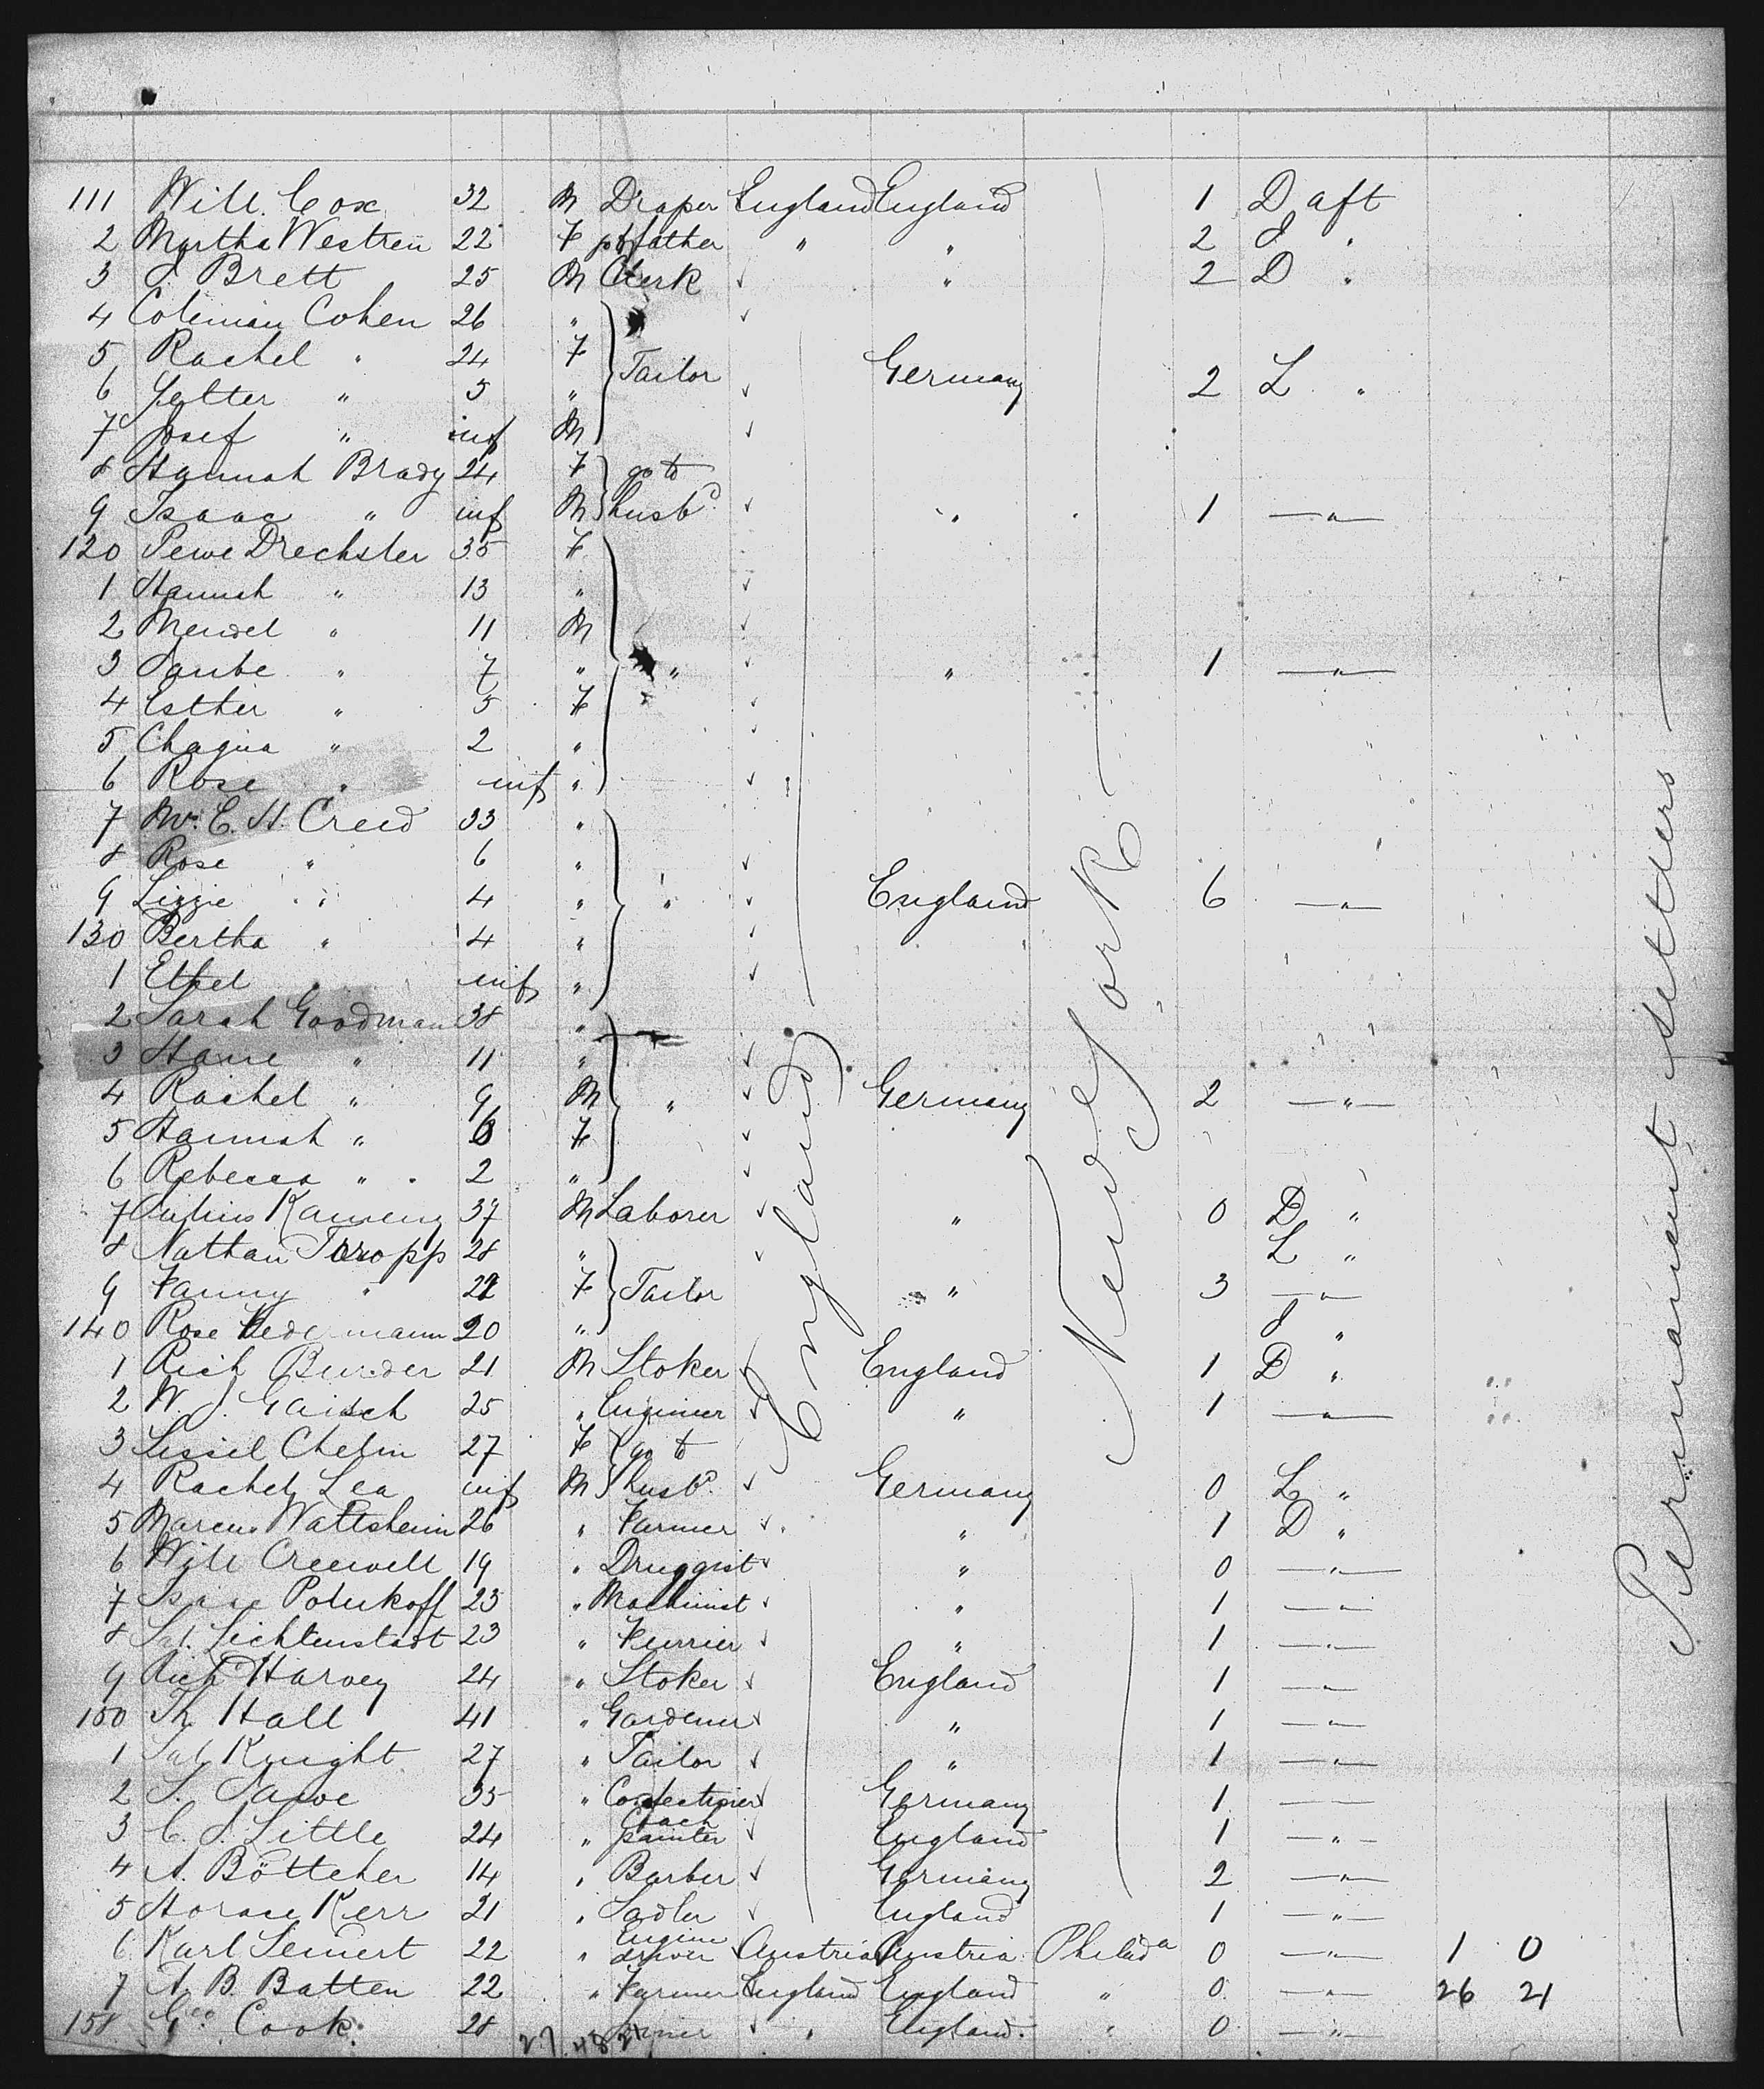 111 Will. Cox 32 M Draper England England 1 D aft
2 Martha Westren 22 F father " " 2 "
3 J. Brett 25 M Clerk ✓ " 2 D "
4 Coleman Cohen 26 " ✓
5 Rachel " 24 F Tailor Germany
6 Yetter " 5 " ✓ 2 L "
7 Josef " inf M ✓
8 Hannah Brady 24 F go to
9 Isaac " inf M husbd ✓ " 1 — " —
120 Pewe Drechsler 35 F
1 Hannah " 13 " ✓
2 Mendel " 11 M ✓
3 Taube " 7 " " ✓ " 1 — " —
4 Esther " 5 F ✓
5 Chagna " 2 " ✓
6 Rose " inf " ✓
7 Mrs. E. H. Creed 33 "
8 Rose " 6 " ✓
9 Lizzie " 4 " " ✓ England 6 — " —
130 Bertha " 4 " ✓
1 Ethel " inf " ✓
2 Sarah Goodman 38 "
3 Hane " 11 " ✓
4 Rachel " 9 M " ✓ Germany 2 — " —
5 Hannah " 6 F ✓
6 Rebecca " 2 " ✓
7 Julius Kameny 37 M Laborer ✓ " 0 D "
8 Nathan Toropp 28 " ✓ L "
9 Fanny " 22 F Tailor " 3 — " —
140 Rose 20 " "
1 Rich Bunder 21 M Stoker ✓ England 1 D "
2 W. J. Gaisch 25 " Engineer ✓ " 1 — " —
3 Lissil Chelm 27 F go to
4 Rachel Lea inf M husbd. ✓ Germany 0 L "
5 Marcus Wattsheim 26 " Farmer ✓ " 1 D "
6 Will Creewell 19 " Druggist ✓ " 0 — " —
7 Isaac Poterkoff 23 " Machinist ✓ " 1 — " —
8 Sal. Lichtenstadt 23 " Furrier ✓ " 1 — " —
9 Richd Harvey 24 " Stoker ✓ England 1 — " —
150 Th. Hall 41 " Gardener ✓ " 1 — " —
1 Knight 27 " Tailor ✓ " 1 — " —
2 S. 35 " Confectioner ✓ Germany 1 — —
3 C. J. Little 24 " Coach painter ✓ England 1 — " —
4 A. Bötteher 14 " Barber ✓ Germany 2 — " —
5 Horace Kerr 21 " Sadler ✓ England 1 — " —
6 Karl Seinert 22 " Engine driver Austria Austria Philada 0 — " — 1 0
7 A. B. Batten 22 " Farmer England England " 0 — " — 26 21
158 Geo. Cook 28 ✓ " England. " 0 — " —
27 48 21
England
New York
Permanent settlers